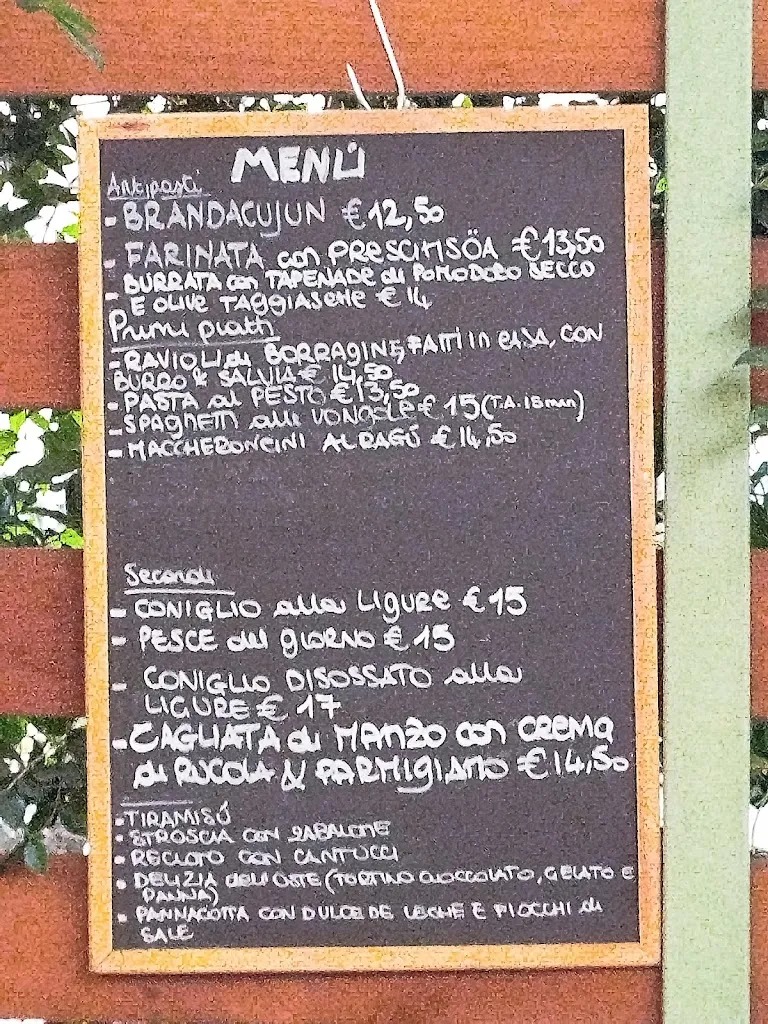 MENÙ
Antipasti
- BRANDACUJUN €12,50
- FARINATA con PRESCINSÖA €13,50
- BURRATA con TAPENADE di POMODORO SECCO
E OLIVE TAGGIASCHE €14
Primi piatti
- RAVIOLI di BORRAGINE, FATTI in CASA, CON
BURRO & SALVIA € 14,50
- PASTA al PESTO €13,50
- SPAGHETTI alle VONGOLE € 15 (T.A. 15 min)
- MACCHERONCINI AL RAGÚ €14,50
Secondi
- CONIGLIO alla LIGURE €15
- PESCE del GIORNO €15
- CONIGLIO DISOSSATO alla
LIGURE € 17
- TAGLIATA di MANZO con CREMA
di RUCOLA & PARMIGIANO €14,50
- TIRAMISÚ
• STROSCIA CON ZABAIONE
• RECIOTO CON CANTUCCI
• DELIZIA dell'OSTE (TORTINO CIOCCOLATO, GELATO E
PANNA)
• PANNACOTTA CON DULCE DE LECHE E FIOCCHI di
SALE